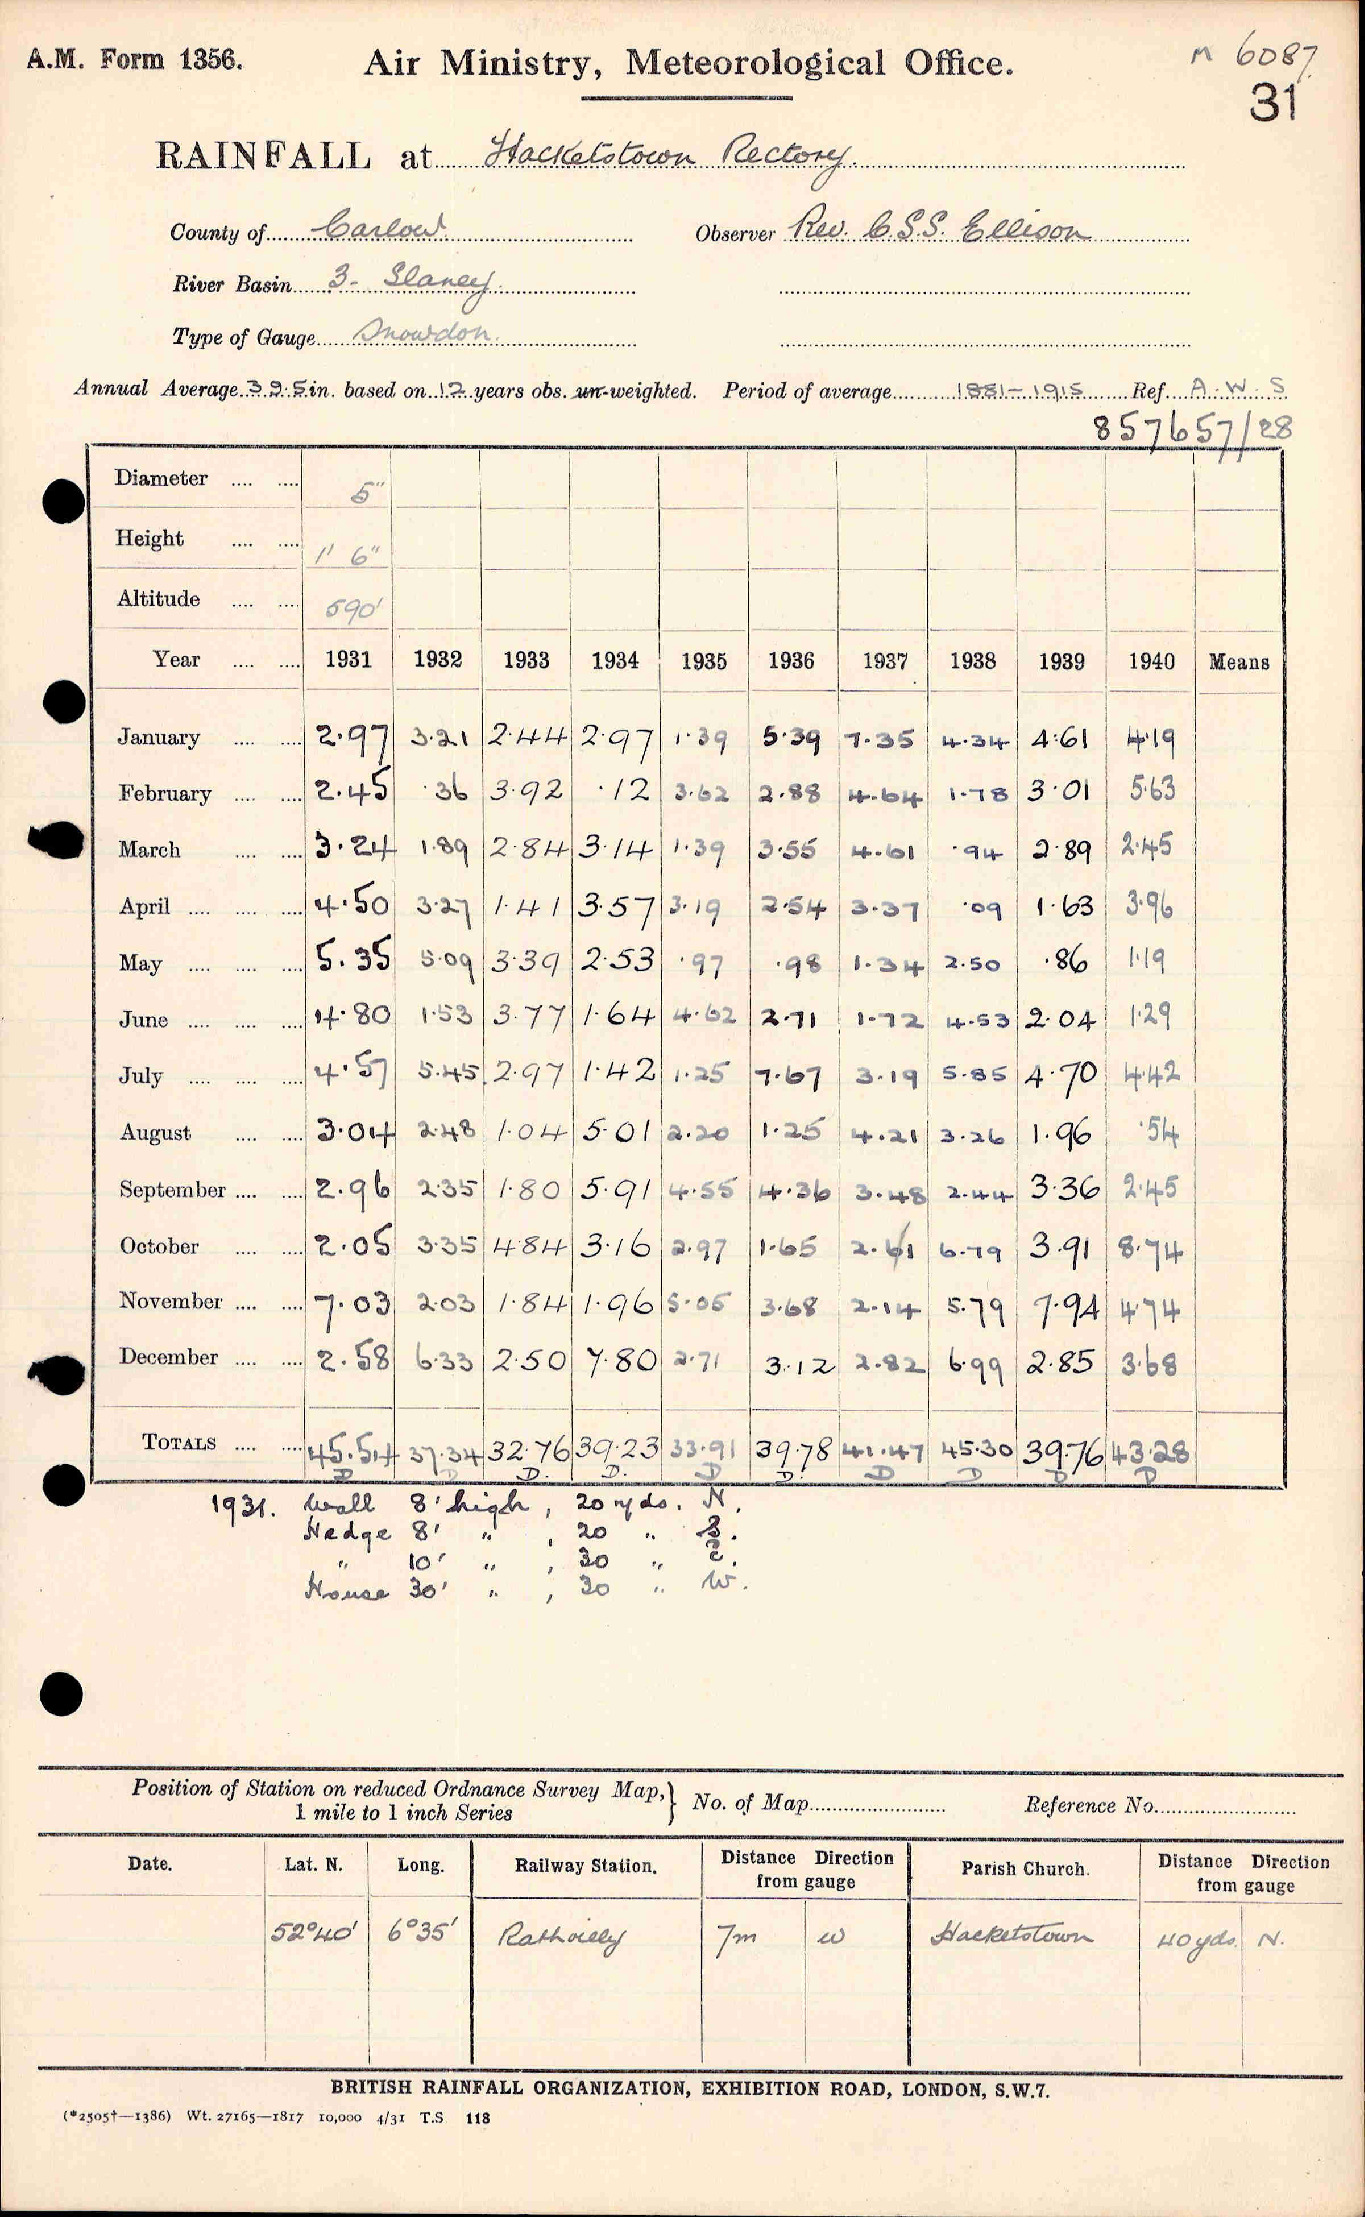 A.M. Form 1356. Air Ministry, Meteorological Office. M 6087
31
RAINFALL at Hacketstown Rectory.
County of Carlow Observer Rev. C.S.S. Ellison
River Basin 3- Slaney
Type of Gauge Snowdon.
Annual Average 39.5 in. based on 12 years obs. un-weighted. Period of average 1881-1915 Ref. A.W.S
857657/28
Diameter .... .... 5"
Height .... .... 1' 6"
Altitude .... .... 590'
Year .... .... 1931 1932 1933 1934 1935 1936 1937 1938 1939 1940 Means
January .... .... 2.97 3.21 2.44 2.97 1.39 5.39 7.35 4.34 4.61 4.19
February .... .... 2.45 .36 3.92 .12 3.62 2.88 4.64 1.78 3.01 5.63
March .... .... 3.24 1.89 2.84 3.14 1.39 3.55 4.61 .94 2.89 2.45
April .... .... .... 4.50 3.27 1.41 3.57 3.19 2.54 3.37 .09 1.63 3.96
May .... .... .... 5.35 5.09 3.39 2.53 .97 .98 1.34 2.50 .86 1.19
June .... .... .... 4.80 1.53 3.77 1.64 4.62 2.71 1.72 4.53 2.04 1.29
July .... .... .... 4.57 5.45 2.97 1.42 1.25 7.67 3.19 5.85 4.70 4.42
August .... .... 3.04 2.48 1.04 5.01 2.20 1.25 4.21 3.26 1.96 .54
September .... .... 2.96 2.35 1.80 5.91 4.55 4.36 3.48 2.44 3.36 2.45
October .... .... 2.05 3.35 4.84 3.16 2.97 1.65 2.61 6.79 3.91 8.74
November .... .... 7.03 2.03 1.84 1.96 5.05 3.68 2.14 5.79 7.94 4.74
December .... .... 2.58 6.33 2.50 7.80 2.71 3.12 2.82 6.99 2.85 3.68
TOTALS .... .... 45.54 37.34 32.76 39.23 33.91 39.78 41.47 45.30 39.76 43.28
D D D. D. D D. D D D D
1931. Wall 8' high, 20 yds. N.
Hedge 8' " , 20 " S.
" 10' " , 30 " E.
House 30' " , 30 " W.
Position of Station on reduced Ordnance Survey Map, } No. of Map Reference No.
1 mile to 1 inch Series
Date. Lat. N. Long. Railway Station. Distance Direction from gauge Parish Church. Distance Direction from gauge
52°40' 6°35' Rathvilly 7m W Hacketstown 40 yds. N.
BRITISH RAINFALL ORGANIZATION, EXHIBITION ROAD, LONDON, S.W.7.
(*2505†—1386) Wt. 27165—1817 10,000 4/31 T.S 118